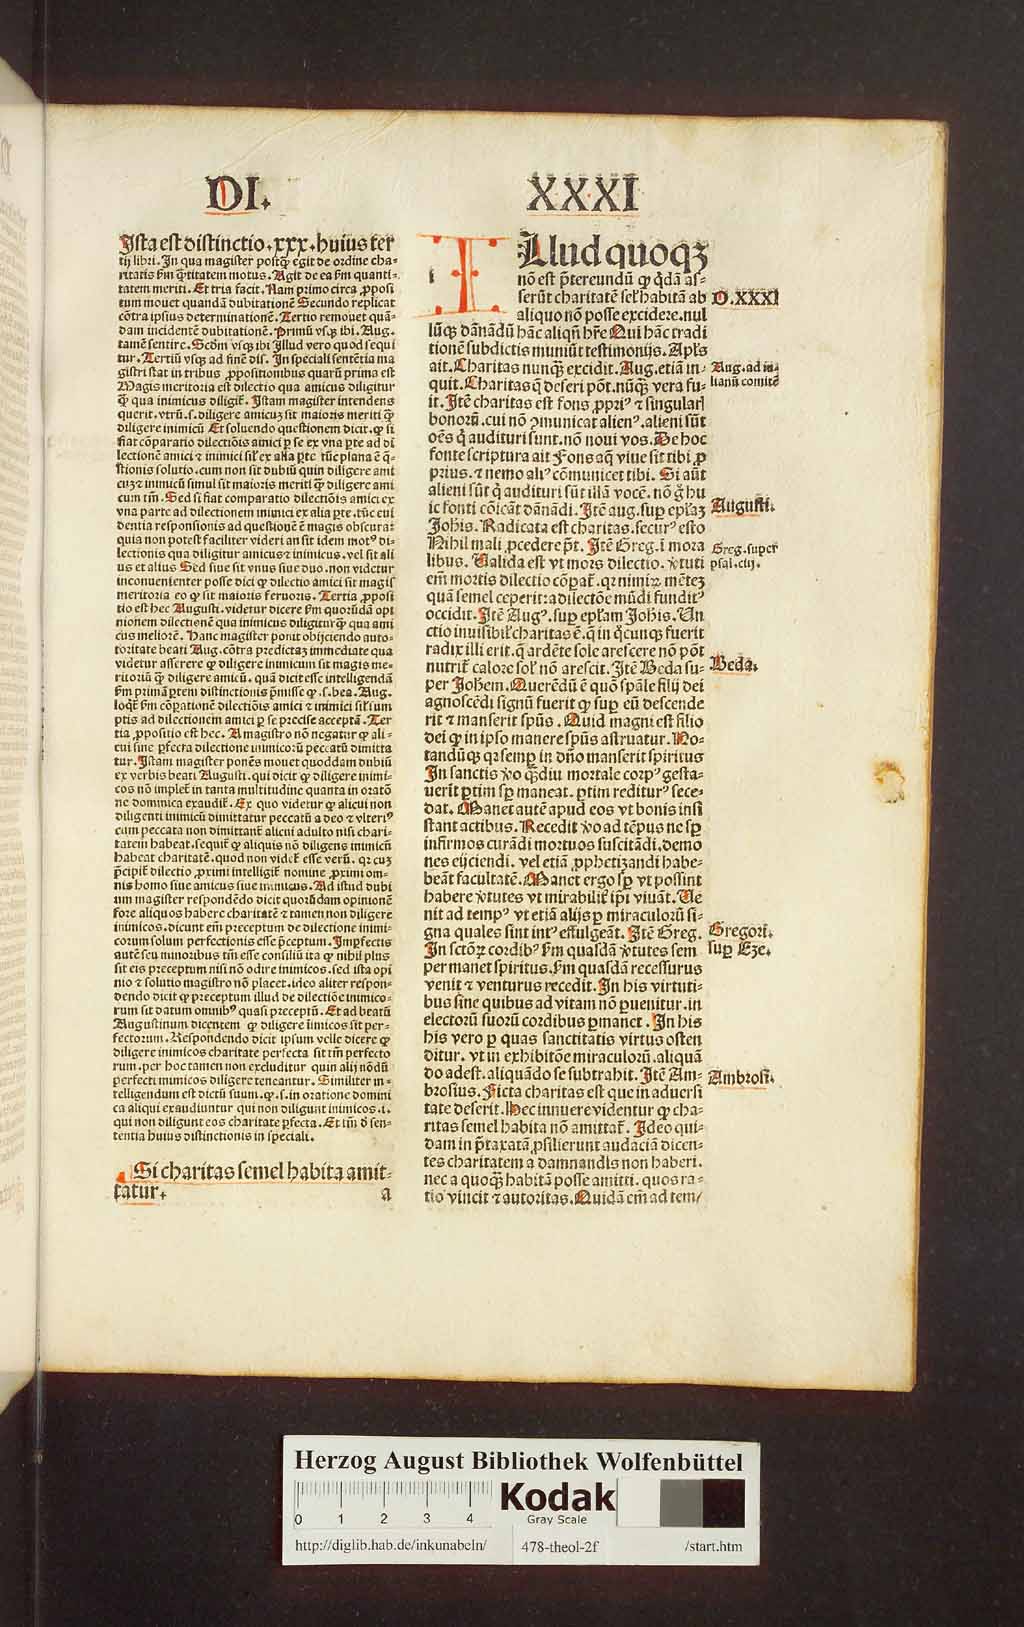 DI.
XXXI
Ista est distinctio .xxx. huius ter
tij libri. In qua magister postq̄ʒ egit de ordine cha-
ritatis ẜm q̄titatem motus. Agit de ea ẜm quanti-
tatem meriti. Et tria facit. Nam primo circa ꝓposi
tum mouet quandā dubitationē Secundo replicat
cōtra ipsius determinationē. Tertio remouet quā-
dam incidentē dubitationē. Primū vsqʒ ibi. Aug.
tamē sentire. Scd̄m vsqʒ ibi Illud vero quod sequi
tur. Tertiū vsqʒ ad finē dis. In speciali sentētia ma
gistri stat in tribus ꝓpositionibus quarū prima est
Magis meritoria est dilectio qua amicus diligitur
qʒ̄ qua inimicus diligit̄. Istam magister intendens
querit. vtrū .s. diligere amicuʒ sit maioris meriti qʒ̄
diligere inimicū Et soluendo questionem dicit. ꝙ si
fiat cōparatio dilectiōis amici ꝑ se ex vna ꝑte ad di
lectionē amici ⁊ inimici sil̄ ex alia ꝑte. tūc plana ē q̄-
stionis solutio. cum non sit dubiū quin diligere ami
cuʒ ⁊ inimicū simul sit maioris meriti qʒ̄ diligere ami
cum tm̄. Sed si fiat comparatio dilectiōis amici ex
vna parte ad dilectionem inimici ex alia ꝑte. tūc eui
dentia responsionis ad questionē ē magis obscura:
quia non potest faciliter videri an sit idem motꝰ di-
lectionis qua diligitur amicus ⁊ inimicus. vel sit ali
us et alius Sed siue sit vnus siue duo. non videtur
inconuenienter posse dici ꝙ dilectio amici sit magis
meritoria eo ꝙ sit maioris feruoris. Tertia ꝓposi
tio est hec Augusti. videtur dicere ẜm quorūdā opi
nionem dilectionē qua inimicus diligitur qʒ̄ qua ami
cus meliorē. Hanc magister ponit obijciendo auto-
ritate beati Aug. cōtra predictaʒ immediate qua
videtur asserere ꝙ diligere inimicum sit magis me-
ritoriū qʒ̄ diligere amicū. quā dicit esse intelligendā
ẜm primā ꝑtem distinctionis p̄misse ꝙ .s. bea. Aug.
loqt̄ ẜm cōparationē dilectiōis amici ⁊ inimici sil̄ sum
ptis ad dilectionem amici ꝑ se precise acceptā. Ter
tia ꝓpositio est hec. A magistro nō negatur ꝙ ali-
cui sine ꝑfecta dilectione inimicorū peccatū dimitta
tur. Istam magister ponēs mouet quoddam dubiū
ex verbis beati Augusti. qui dicit ꝙ diligere inimi-
cos nō implet̄ in tanta multitudine quanta in oratō
ne dominica exaudit̄. Ex quo videtur ꝙ alicui non
diligenti inimicū dimittatur peccatū a deo ⁊ vlteriꝰ
cum peccata non dimittant̄ alicui adulto nisi chari-
tatem habeat. sequit̄ ꝙ aliquis nō diligens inimicū
habeat charitatē. quod non videt̄ esse verū. qꝛ cuʒ
p̄cipit̄ dilectio ꝓximi intelligit̄ nomine ꝓximi om-
nis homo siue amicus siue inimicus. Ad istud dubi
um magister respondēdo dicit quorūdam opinionē
fore aliquos habere charitatē ⁊ tamen non diligere
inimicos. dicunt em̄ preceptum de dilectione inimi-
corum solum perfectionis esse p̄ceptum. Imꝑfectis
autē seu minoribus tm̄ esse consiliū ita ꝙ nihil plus
sit eis preceptum nisi nō odire inimicos. sed ista opi
nio ⁊ solutio magistro nō placet. ideo aliter respon-
dendo dicit ꝙ preceptum illud de dilectiōe inimico-
rum sit datum omnibꝰ quasi preceptū. Et ad beatū
Augustinum dicentem ꝙ diligere īimicos sit per-
fectorum. Respondendo dicit ipsum velle dicere ꝙ
diligere inimicos charitate perfecta sit tm̄ perfecto
rum. per hoc tamen non excluditur quin alij nōdū
perfecti inimicos diligere teneantur. Similiter in-
telligendum est dictū suum. ꝙ .s. in oratione domini
ca aliqui exaudiuntur qui non diligunt inimicos .i.
qui non diligunt eos charitate ꝑfecta. Et tm̄ d̄ sen-
tentia huius distinctionis in speciali.
Si charitas semel habita amit-
tatur.
a
Illud quoqʒ
nō est p̄tereundū ꝙ q̄dā as-
serūt charitatē sel̄ habitā ab
aliquo nō posse excidere. nul
lūqʒ dānādū hāc aliqn̄ hr̄e Qui hāc tradi
tionē subdictis muniūt testimonijs. Apl̄s
ait. Charitas nunqʒ̄ excidit. Aug. etiā in-
quit. Charitas q̄ deseri pōt. nūqʒ̄ vera fu-
it. Itē charitas est fons ꝓpriꝰ ⁊ singularꝭ
bonorū. cui nō ꝯmunicat alienꝰ. alieni sūt
oēs q̇ audituri sunt. nō noui vos. De hoc
fonte scriptura ait Fons aq̄ viue sit tibi ꝓ
prius. ⁊ nemo aliꝰ cōmunicet tibi. Si aūt
alieni sūt q̇ audituri sūt illā vocē. nō g̊ hu
ic fonti cōicāt dānādi. Itē aug. suꝑ epl̄aʒ
Joh̄is. Radicata est charitas. securꝰ esto
Nihil mali ꝓcedere pt̄. Itē Greg. ī mora
libus. Valida est vt mors dilectio. ꝟtuti
em̄ mortis dilectio cōpat̄. qꝛ nimiꝝ mēteʒ
quā semel ceperit: a dilectōe mūdi funditꝰ
occidit. Itē Augꝰ. suꝑ epl̄am Joh̄is. Vn
ctio inuisibil̄ charitas ē. q̄ in q̊cunqʒ fuerit
radix illi erit. q̄ ardēte sole arescere nō pōt
nutrit̄ calore sol̄ nō arescit. Itē Beda su-
per Joh̄em. Querēdū ē quō sp̄ale filij dei
agnoscēdi signū fuerit ꝙ suꝑ eū descende
rit ⁊ manserit spūs. Quid magni est filio
dei ꝙ in ipso manere spūs astruatur. No-
tandūqʒ qꝛ semꝑ in dn̄o manserit spiritus
In sanctis ꝟo qʒ̄diu mortale corpꝰ gesta-
uerit ꝑtim sꝑ maneat. ꝑtim reditur̉ sece-
dat. Manet autē apud eos vt bonis insi
stant actibus. Recedit ꝟo ad tēpus ne sꝑ
infirmos curādi mortuos suscitādi. demo
nes eijciendi. vel etiā ꝓphetizandi habe-
beāt facultatē. Manet ergo sꝑ vt possint
habere ꝟtutes vt mirabilit̄ ip̄i viuāt. Ve
nit ad tempꝰ vt etiā alijs ꝑ miraculorū si-
gna quales sint intꝰ effulgeāt. Itē Greg.
In sctōꝝ cordibꝰ ẜm quasdā ꝟtutes sem
per manet spiritus. ẜm quasdā recessurus
venit ⁊ venturus recedit. In his virtuti-
bus sine quibus ad vitam nō ꝑuenitur. in
electorū suorū cordibus ꝑmanet. In his
his vero ꝑ quas sanctitatis virtus osten
ditur. vt in exhibitōe miraculorū. aliquā
do adest. aliquādo se subtrahit. Itē Am-
brosius. Ficta charitas est que in aduersi
tate deserit. Hec innuere videntur ꝙ cha-
ritas semel habita nō amittat̄. Ideo qui-
dam in p̄taxatā ꝓsilierunt audaciā dicen-
tes charitatem a damnandis non haberi.
nec a quoqʒ̄ habitā posse amitti. quos ra-
tio vincit ⁊ autoritas. Quidā em̄ ad tem/
D. XXXI
Aug. ad iu-
lianū comitē
Augusti.
Greg. super
psal. ciij.
Beda.
Gregori.
suꝑ Eze.
Ambrosi.
Herzog August Bibliothek Wolfenbüttel
0 1 2 3 4
Kodak
Gray Scale
http://diglib.hab.de/inkunabeln/
478-theol-2f
/start.htm